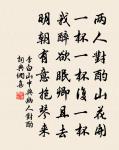 两人對酌山花開
一杯一杯復一杯
我醉欲眠卿且去
明朝有意抱琴來
李白山中與幽人對酌